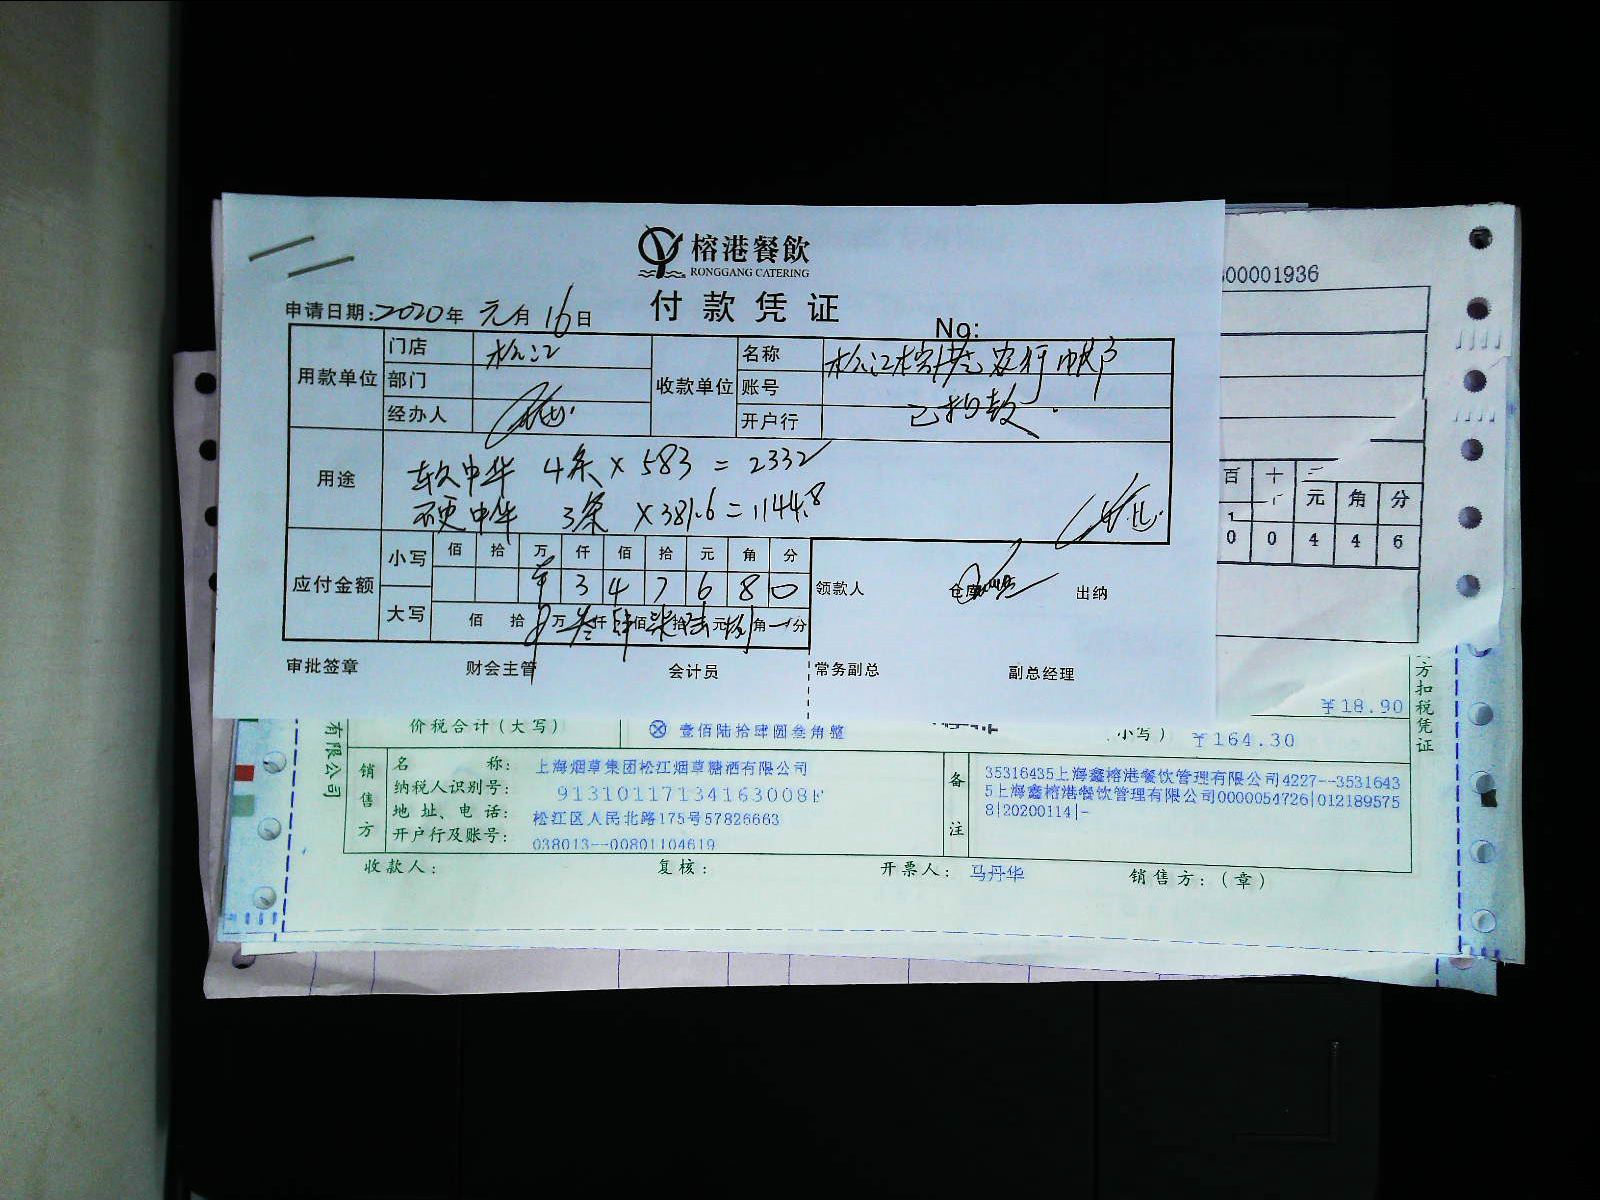 榕港餐飲
RONGGANG CATERING
付款凭证
申请日期:2020年 元月 16日
No:
00001936
用款单位 门店 松江 收款单位 名称 松江榕港农行帐户
部门 账号
经办人 开户行 已扣款.
用途 软中华 4条 × 583 = 2332
硬中华 3条 × 381.6 = 1144.8
百 十 元 角 分
0 0 4 4 6
应付金额 小写 佰 拾 万 仟 佰 拾 元 角 分
3 4 7 6 8 0
大写 佰 拾 万 叁仟 肆佰 柒拾 陆元 捌角 一分
领款人 仓库 出纳
审批签章 财会主管 会计员 常务副总 副总经理
¥18.90
方扣税凭证
有限公司
价税合计(大写) ⊗ 壹佰陆拾肆圆叁角整 小写) ¥164.30
销售方 名称: 上海烟草集团松江烟草糖酒有限公司
纳税人识别号: 91310117134163008F
地址、电话: 松江区人民北路175号57826663
开户行及账号: 038013--00801104619
备注 35316435上海鑫榕港餐饮管理有限公司4227--3531643
5上海鑫榕港餐饮管理有限公司0000054726|012189575
8|20200114|-
收款人: 复核: 开票人: 马丹华 销售方:(章)